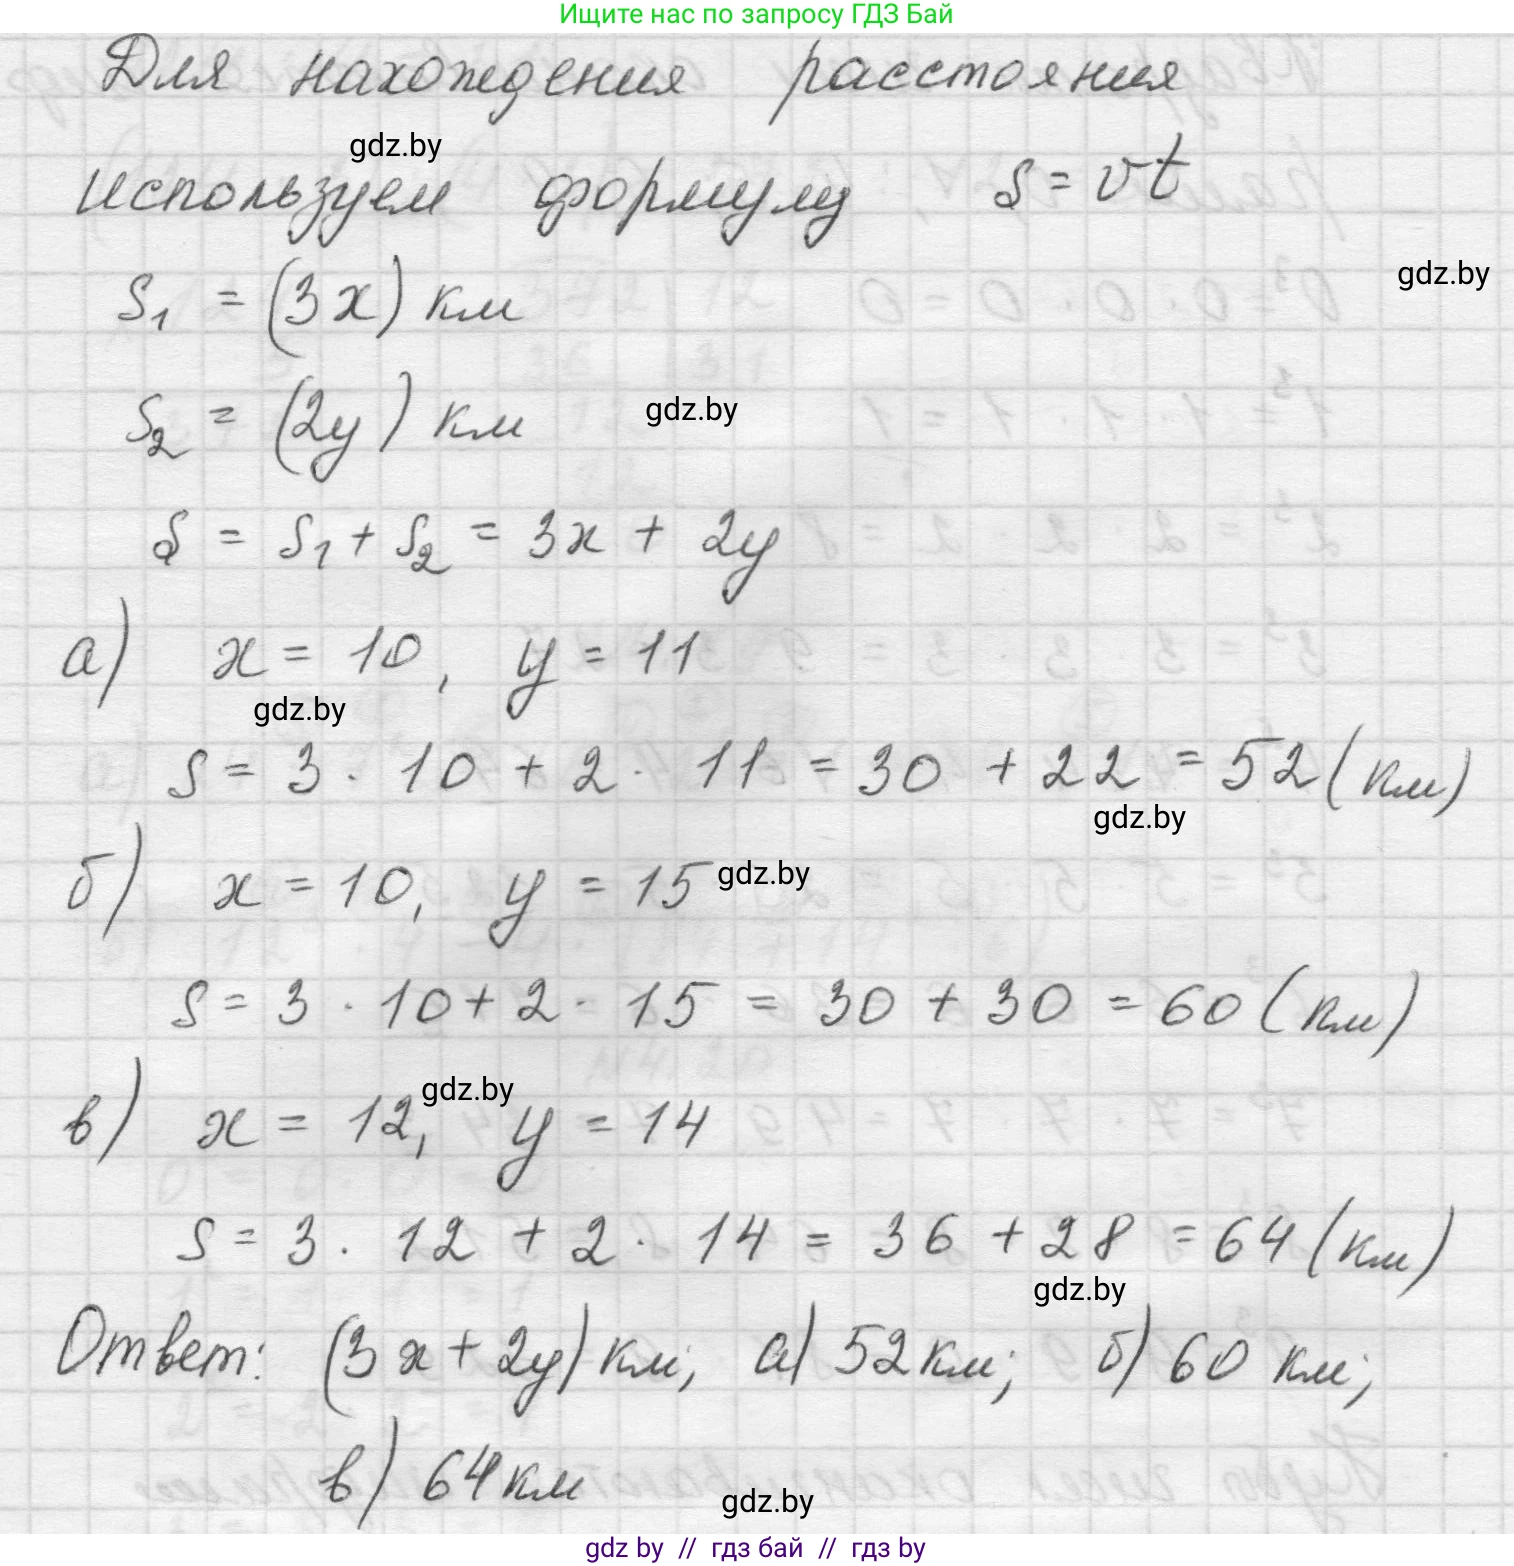 Ищите нас по запросу ГДЗ Бай
Для нахождения расстояния
gdz.by
используем формулу s = vt
gdz.by
s₁ = (3x) км
s₂ = (2y) км
gdz.by
s = s₁ + s₂ = 3x + 2y
а) x = 10, y = 11
gdz.by
s = 3 · 10 + 2 · 11 = 30 + 22 = 52 (км)
gdz.by
б) x = 10, y = 15
gdz.by
s = 3 · 10 + 2 · 15 = 30 + 30 = 60 (км)
gdz.by
в) x = 12, y = 14
s = 3 · 12 + 2 · 14 = 36 + 28 = 64 (км)
gdz.by
Ответ: (3x + 2y) км; а) 52 км; б) 60 км;
в) 64 км
gdz.by
gdz by // гдз бай // гдз by